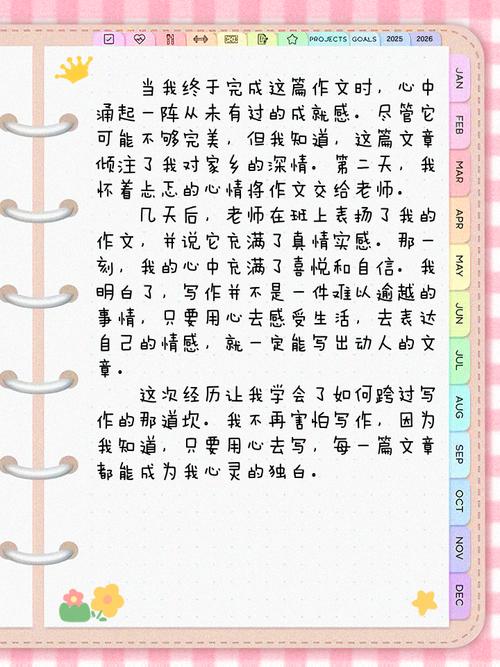 PROJECTS GOALS 2025 2026
当我终于完成这篇作文时，心中
涌起一阵从未有过的成就感。尽管它
可能不够完美，但我知道，这篇文章
倾注了我对家乡的深情。第二天，我
怀着忐忑的心情将作文交给老师。
几天后，老师在班上表扬了我的
作文，并说它充满了真情实感。那一
刻，我的心中充满了喜悦和自信。我
明白了，写作并不是一件难以逾越的
事情，只要用心去感受生活，去表达
自己的情感，就一定能写出动人的文
章。
这次经历让我学会了如何跨过写
作的那道坎。我不再害怕写作，因为
我知道，只要用心去写，每一篇文章
都能成为我心灵的独白。
JAN
FEB
MAR
APR
MAY
JUN
JUL
AUG
SEP
OCT
NOV
DEC